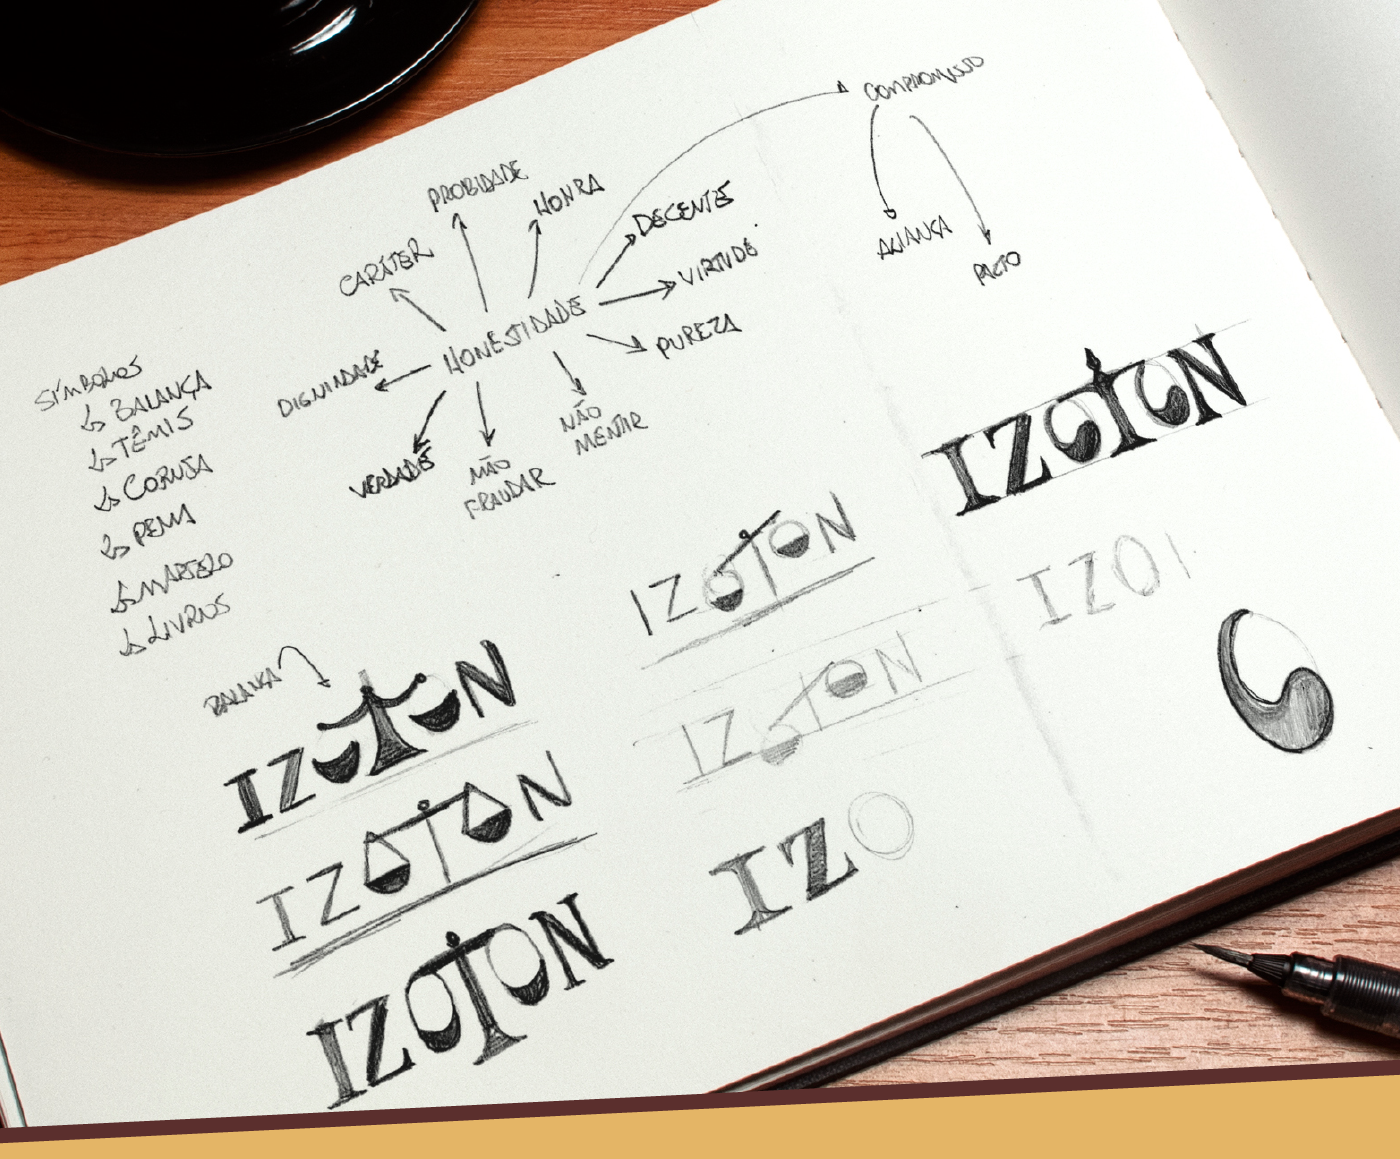 COMPROMISSO
ALIANÇA
PACTO
PROBIDADE
HONRA
DECENTE
CARÁTER
VIRTUDE
HONESTIDADE
PUREZA
DIGNIDADE
NÃO
MENTIR
VERDADE
NÃO
FRAUDAR
SÍMBOLOS
BALANÇA
TÊMIS
CORUJA
PENA
MARTELO
LIVROS
BALANÇA
IZOTON
IZOTON
IZOTON
IZOTON
IZOTON
IZO
IZOTON
IZOI